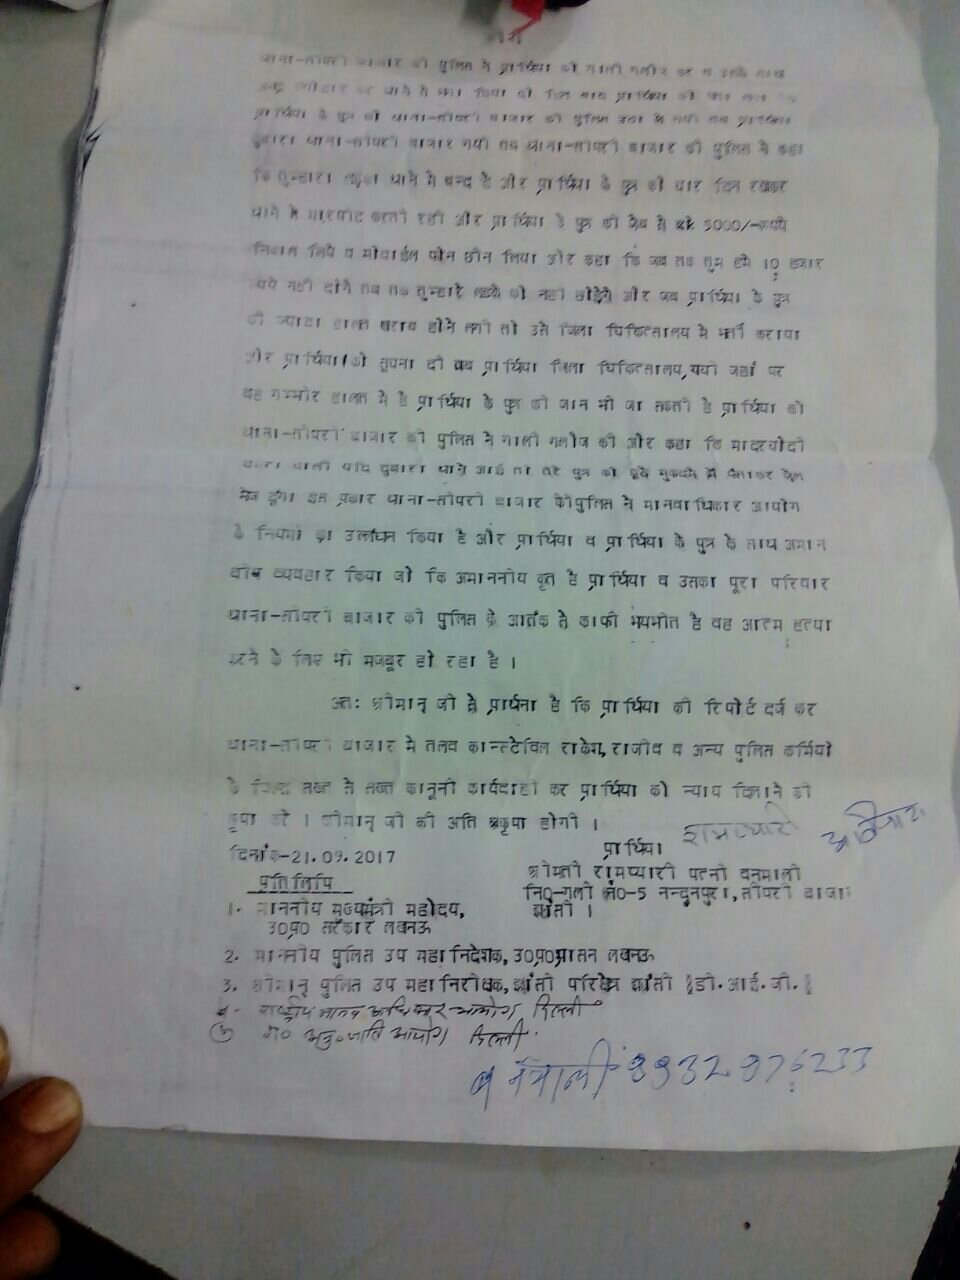 थाना-सीपरी बाजार की पुलिस ने प्रार्थिया को गाली गलौज कर व उसके साथ
प्रार्थिया के पुत्र को थाना-सीपरी बाजार की पुलिस उठा ले गयी तब प्रार्थिया
दुबारा थाना-सीपरी बाजार गयी तब थाना-सीपरी बाजार की पुलिस ने कहा
कि तुम्हारा लड़का थाने मे बन्द है और प्रार्थिया के पुत्र को चार दिन रखकर
थाने मे मारपीट करती रही और प्रार्थिया के पुत्र की जेब से 5000/-रूपये
निकाल लिये व मोबाईल फोन छीन लिया और कहा कि जब तक तुम हमे 10 हजार
रूपये नही दोगे तब तक तुम्हारे लडके को नही छोड़ेगे और जब प्रार्थिया के पुत्र
की ज्यादा हालत खराब होने लगी तो उसे जिला चिकित्सालय मे भर्ती कराया
और प्रार्थिया को सूचना दी जब प्रार्थिया जिला चिकित्सालय,गयी जहां पर
वह गम्भीर हालत मे है प्रार्थिया के पुत्र की जान भी जा सकती है प्रार्थिया को
थाना-सीपरी बाजार की पुलिस ने गाली गलौज की और कहा कि मादरचोदी
वाली यदि दुबारा थाने आई तो तेरे पुत्र को झूठे मुकदमे मे फंसाकर जेल
भेज दूंगा इस प्रकार थाना-सीपरी बाजार की पुलिस ने मानवाधिकार आयोग
के नियमो का उलंघन किया है और प्रार्थिया व प्रार्थिया के पुत्र के साथ अमान
वीय व्यवहार किया जो कि अमाननीय कृत है प्रार्थिया व उसका पूरा परिवार
थाना-सीपरी बाजार की पुलिस के आतंक से काफी भयभीत है वह आत्म हत्या
करने के लिए भी मजबूर हो रहा है ।
अतः श्रीमान् जी से प्रार्थना है कि प्रार्थिया की रिपोर्ट दर्ज कर
थाना-सीपरी बाजार मे तलव कान्स्टेविल राकेश,राजीव व अन्य पुलिस कर्मियो
के विरूद्ध सख्त से सख्त कानूनी कार्यवाही कर प्रार्थिया को न्याय दिलाने की
कृपा करे । श्रीमान् जी की अति कृपा होगी ।
रामप्यारी
दिनांक-21.09.2017
प्रार्थिया
श्रीमती रामप्यारी पत्नी वनमाली
नि0-गली नं0-5 नन्दनपुरा,सीपरी बाजार
झांसी ।
प्रतिलिपि
1. माननीय मुख्यमंत्री महोदय,
उ0प्र0 सरकार लखनऊ
2. माननीय पुलिस उप महानिदेशक,उ0प्र0शासन लखनऊ
3. श्रीमान् पुलिस उप महानिरीक्षक,झांसी परिक्षेत्र झांसी [डी.आई.जी.]
4. राष्ट्रीय मानव अधिकार आयोग दिल्ली
5 रा० अनु०जाति आयोग दिल्ली
8932976233